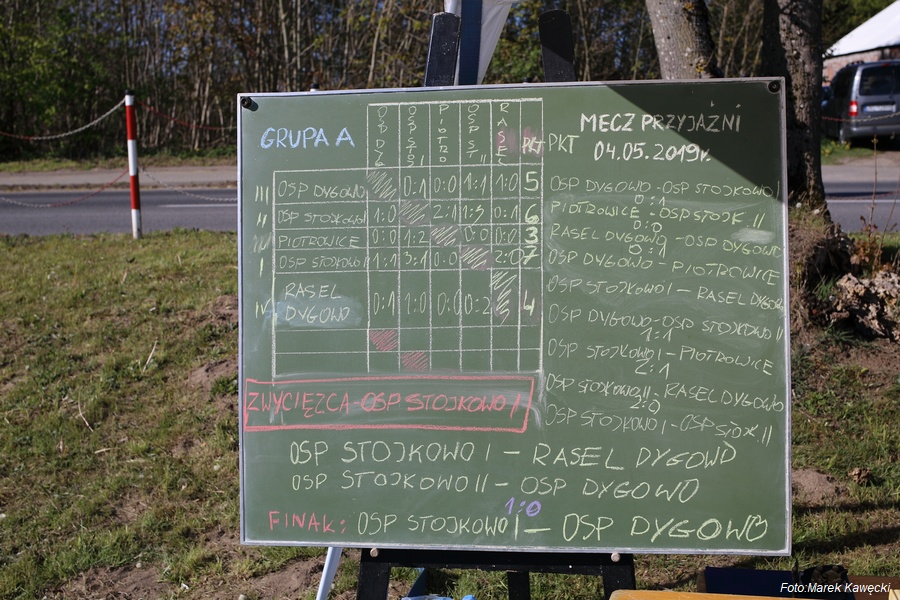 GRUPA A
OSP DYG
OSP STSI
PIOTRO
OSP ST II
RASEL
PKT
PKT
MECZ PRZYJAŹNI
04.05.2019r.
III OSP DYGOWO 0:1 0:0 1:1 1:0 5
II OSP STOJKOWO I 1:0 2:1 1:3 0:1 6
PIOTROWICE 0:0 1:2 0:0 0:0 3
I OSP STOJKOWO II 1:1 3:1 0:0 2:0 7
IV RASEL DYGOWO 0:1 1:0 0:0 0:2 4
OSP DYGOWO - OSP STOJKOWO I
0:1
PIOTROWICE - OSP STOJK. II
0:0
RASEL DYGOWO - OSP DYGOWO
0:1
OSP DYGOWO - PIOTROWICE
OSP STOJKOWO I - RASEL DYGOW
OSP DYGOWO - OSP STOJKOWO II
1:1
OSP STOJKOWO I - PIOTROWICE
2:1
OSP STOJKOWO II - RASEL DYGOWO
2:0
OSP STOJKOWO I - OSP STOJK. II
ZWYCIĘZCA - OSP STOJKOWO I
OSP STOJKOWO I - RASEL DYGOWO
OSP STOJKOWO II - OSP DYGOWO
1:0
FINAŁ: OSP STOJKOWO I - OSP DYGOWO
Foto:Marek Kawęcki